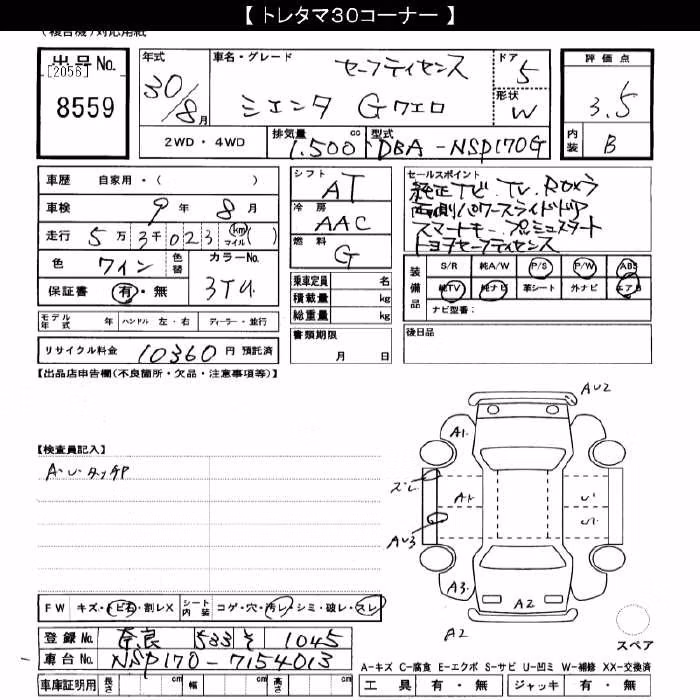 【 トレタマ30コーナー 】
(複合機)対応用紙
出品No.
[2056]
8559
年式
30/8月
車名・グレード
セーフティセンス
シエンタ Gクエロ
ドア
5
形状
W
評価点
3.5
内装
B
2WD・4WD
排気量
1.500 cc
型式
DBA-NSP170G
車歴 自家用・( )
車検 9年 8月
走行 5万3千023 (km マイル) ( )
色 ワイン 色替
カラーNo.
3TU
保証書 有・無
モデル年式 年 ハンドル 左・右 ディーラー・並行
リサイクル料金 10360 円 預託済
シフト
AT
冷房
AAC
燃料
G
乗車定員 名
積載量 kg
総重量 kg
書類期限
月 日
セールスポイント
純正ナビ.TV.Rカメラ
両側パワースライドドア
スマートキー.プッシュスタート
トヨタセーフティセンス
装備品
S/R 純A/W P/S P/W ABS
純TV 純ナビ 革シート 外ナビ エアB
ナビ型番:
後日品
【出品店申告欄(不良箇所・欠品・注意事項等)】
【検査員記入】
A.U.タッチP
AU2
A1.
スレ
A1
U1
U1
AU3
A3.
A2
A2
スペア
FW キズ・トビ石・割レX シート内装 コゲ・穴・汚レ・シミ・破レ・スレ
登録No. 奈良 533 そ 1045
車台No. NSP170-7154013
車庫証明用 長さ cm 幅 cm 高さ cm
A-キズ C-腐食 E-エクボ S-サビ U-凹ミ W-補修 XX-交換済
工具 有・無 ジャッキ 有・無